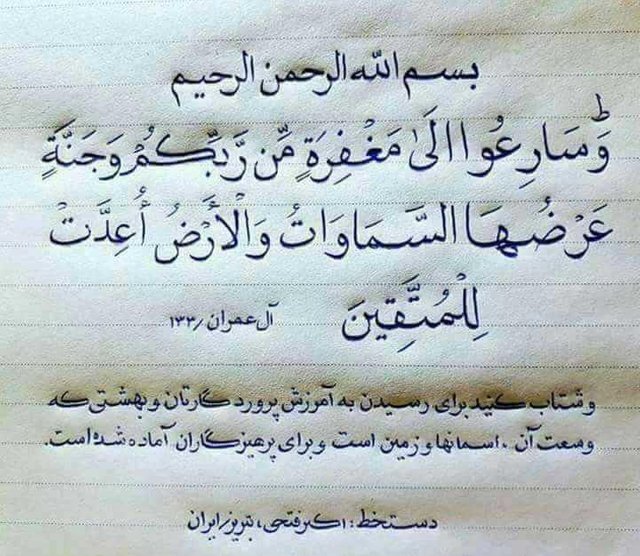 بسم الله الرحمن الرحیم
وَسَارِعُوا اِلَىٰ مَغْفِرَةٍ مِّن رَّبِّكُمْ وَجَنَّةٍ
عَرْضُهَا السَّمَاوَاتُ وَالْأَرْضُ أُعِدَّتْ
لِلْمُتَّقِينَ
آل عمران / ۱۳۳
و شتاب کنید برای رسیدن به آمرزش پروردگارتان و بهشتی که
وسعت آن، اسمانها و زمین است و برای پرهیزگاران آماده شده است.
دستخط: اکبر فتحی، تبریز/ایران